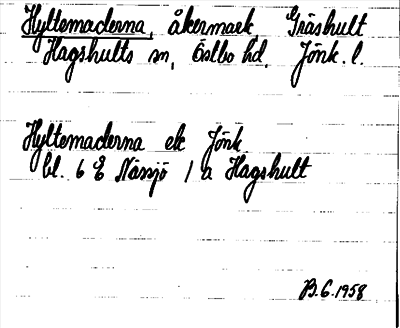 Hyltemaderna, åkermark, Gräshult
Hagshults sn, Östbo hd, Jönk. l.
Hyltemaderna ek Jönk
bl. 6 E Nässjö 1 a Hagshult
B.G. 1958